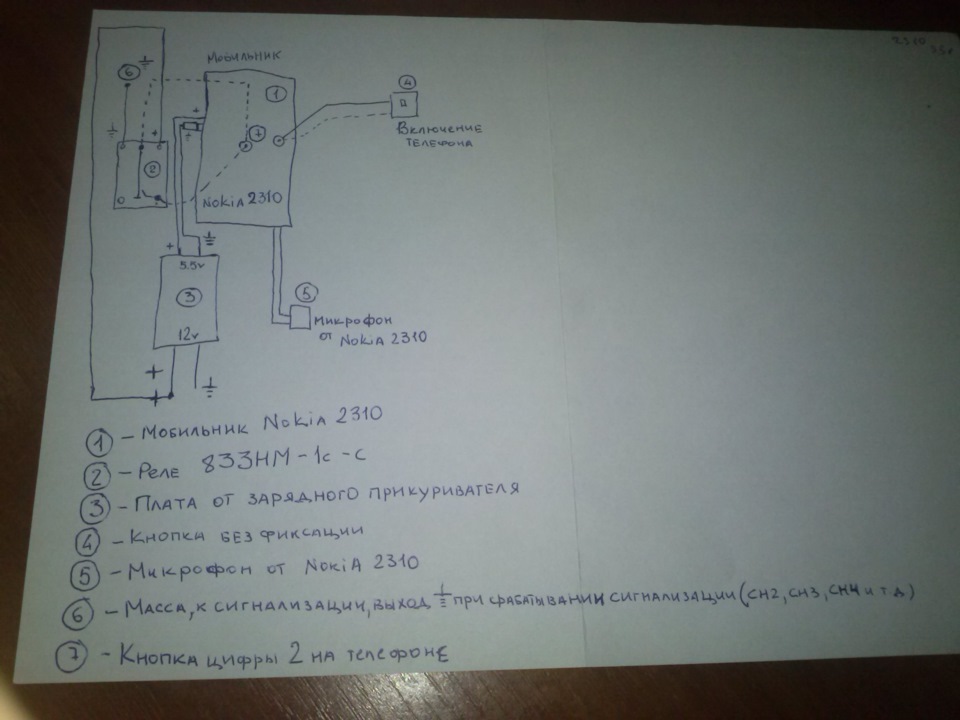 2310
МОБИЛЬНИК
6
1
4
+
+
7
ВКЛЮЧЕНИЕ
ТЕЛЕФОНА
2
NOKIA 2310
+
5.5v
3
5
МИКРОФОН
ОТ NOKIA 2310
12v
+
+
1 - МОБИЛЬНИК NOKIA 2310
2 - РЕЛЕ 833HM-1c-c
3 - ПЛАТА ОТ ЗАРЯДНОГО ПРИКУРИВАТЕЛЯ
4 - КНОПКА БЕЗ ФИКСАЦИИ
5 - МИКРОФОН ОТ NOKIA 2310
6 - МАССА, К СИГНАЛИЗАЦИИ, ВЫХОД ПРИ СРАБАТЫВАНИИ СИГНАЛИЗАЦИИ (CH2, CH3, CH4 И Т Д)
7 - КНОПКА ЦИФРЫ 2 НА ТЕЛЕФОНЕ